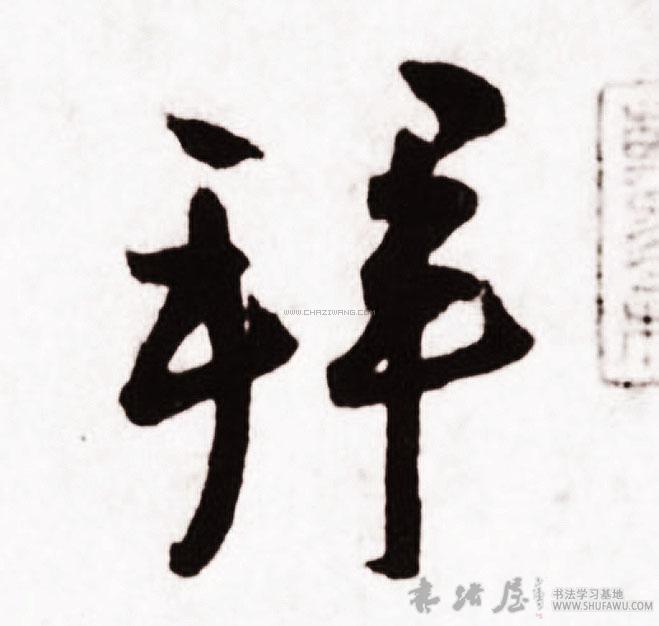 拜
WWW.CHAZIWANG.COM
书法屋
书法学习基地
WWW.SHUFAWU.COM